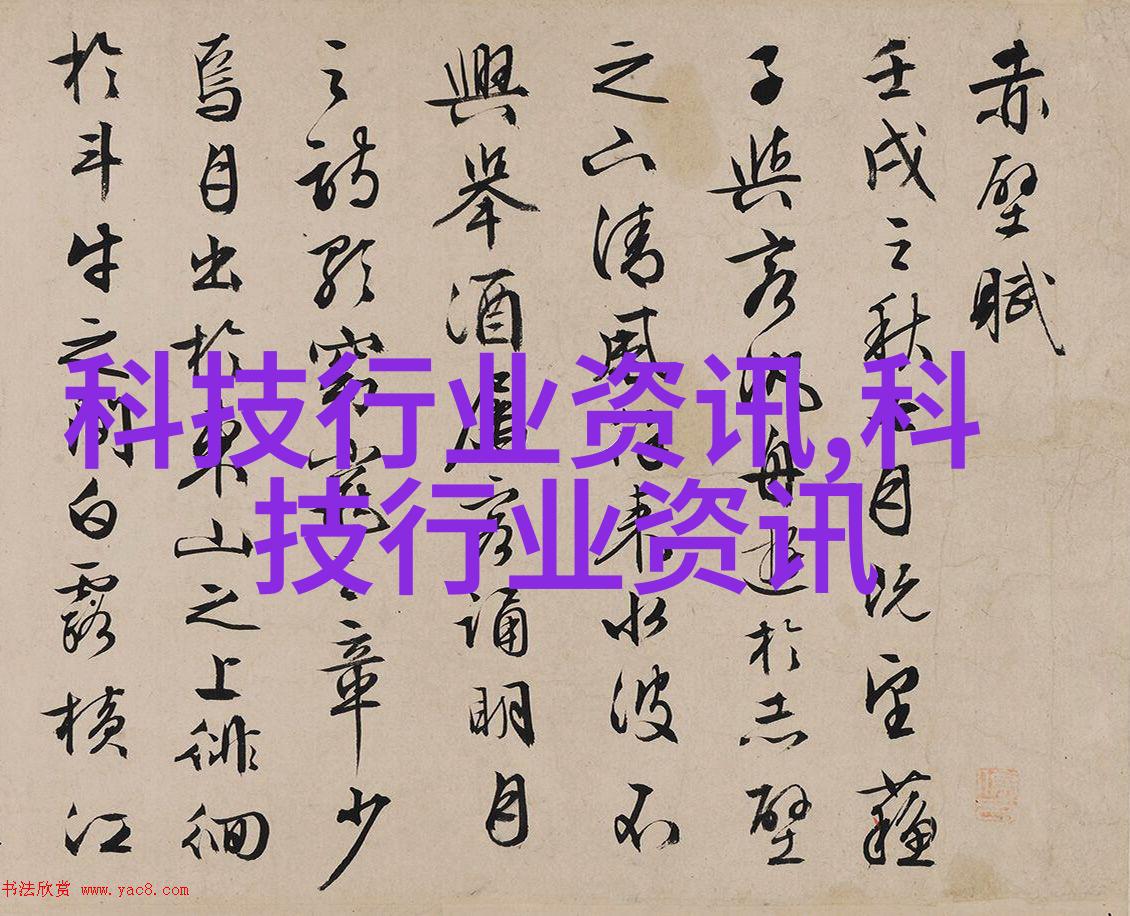 赤壁賦
壬戌之秋七月既望蘇
子與客泛舟遊於赤壁
之下清風徐來水波不
興舉酒屬客誦明月
之詩歌窈窕之章少
焉月出於東山之上徘徊
於斗牛之間白露橫江
科技行业资讯,科
技行业资讯
书法欣赏 www.yac8.com